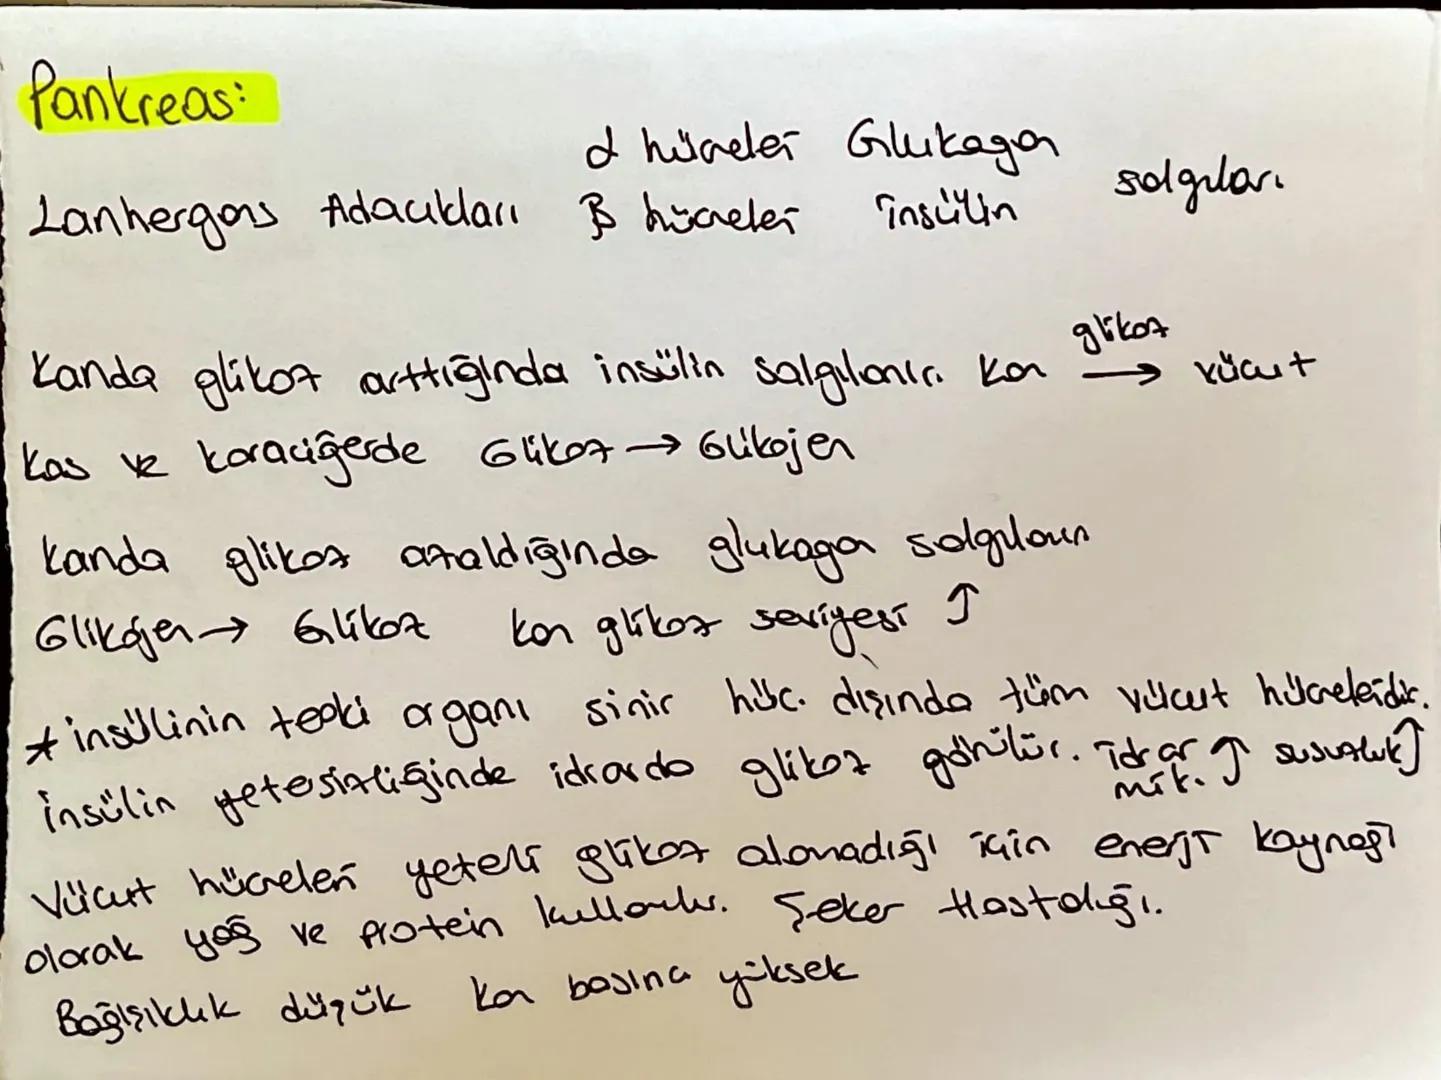 Pankreas:
α hücreleri Glukagon
Lanhergans Adacıkları β hücreleri insülin salgıları
Kanda glikoz arttığında insülin salgılanır. Kan glikoz → vücut
Kas ve karaciğerde Glikoz → Glikojen
Kanda glikoz azaldığında glukagon salgılanır
Glikojen → Glikoz kan glikoz seviyesi ↑
* insülinin tepki organı sinir hüc. dışında tüm vücut hücreleridir.
İnsülin yetersizliğinde idrarda glikoz görülür. idrar mik. ↑ susuzluk ↑
Vücut hücreleri yeterli glikoz alamadığı için enerji kaynağı
olarak yağ ve protein kullanılır. Şeker Hastalığı.
Bağışıklık düşük kan basıncı yüksek